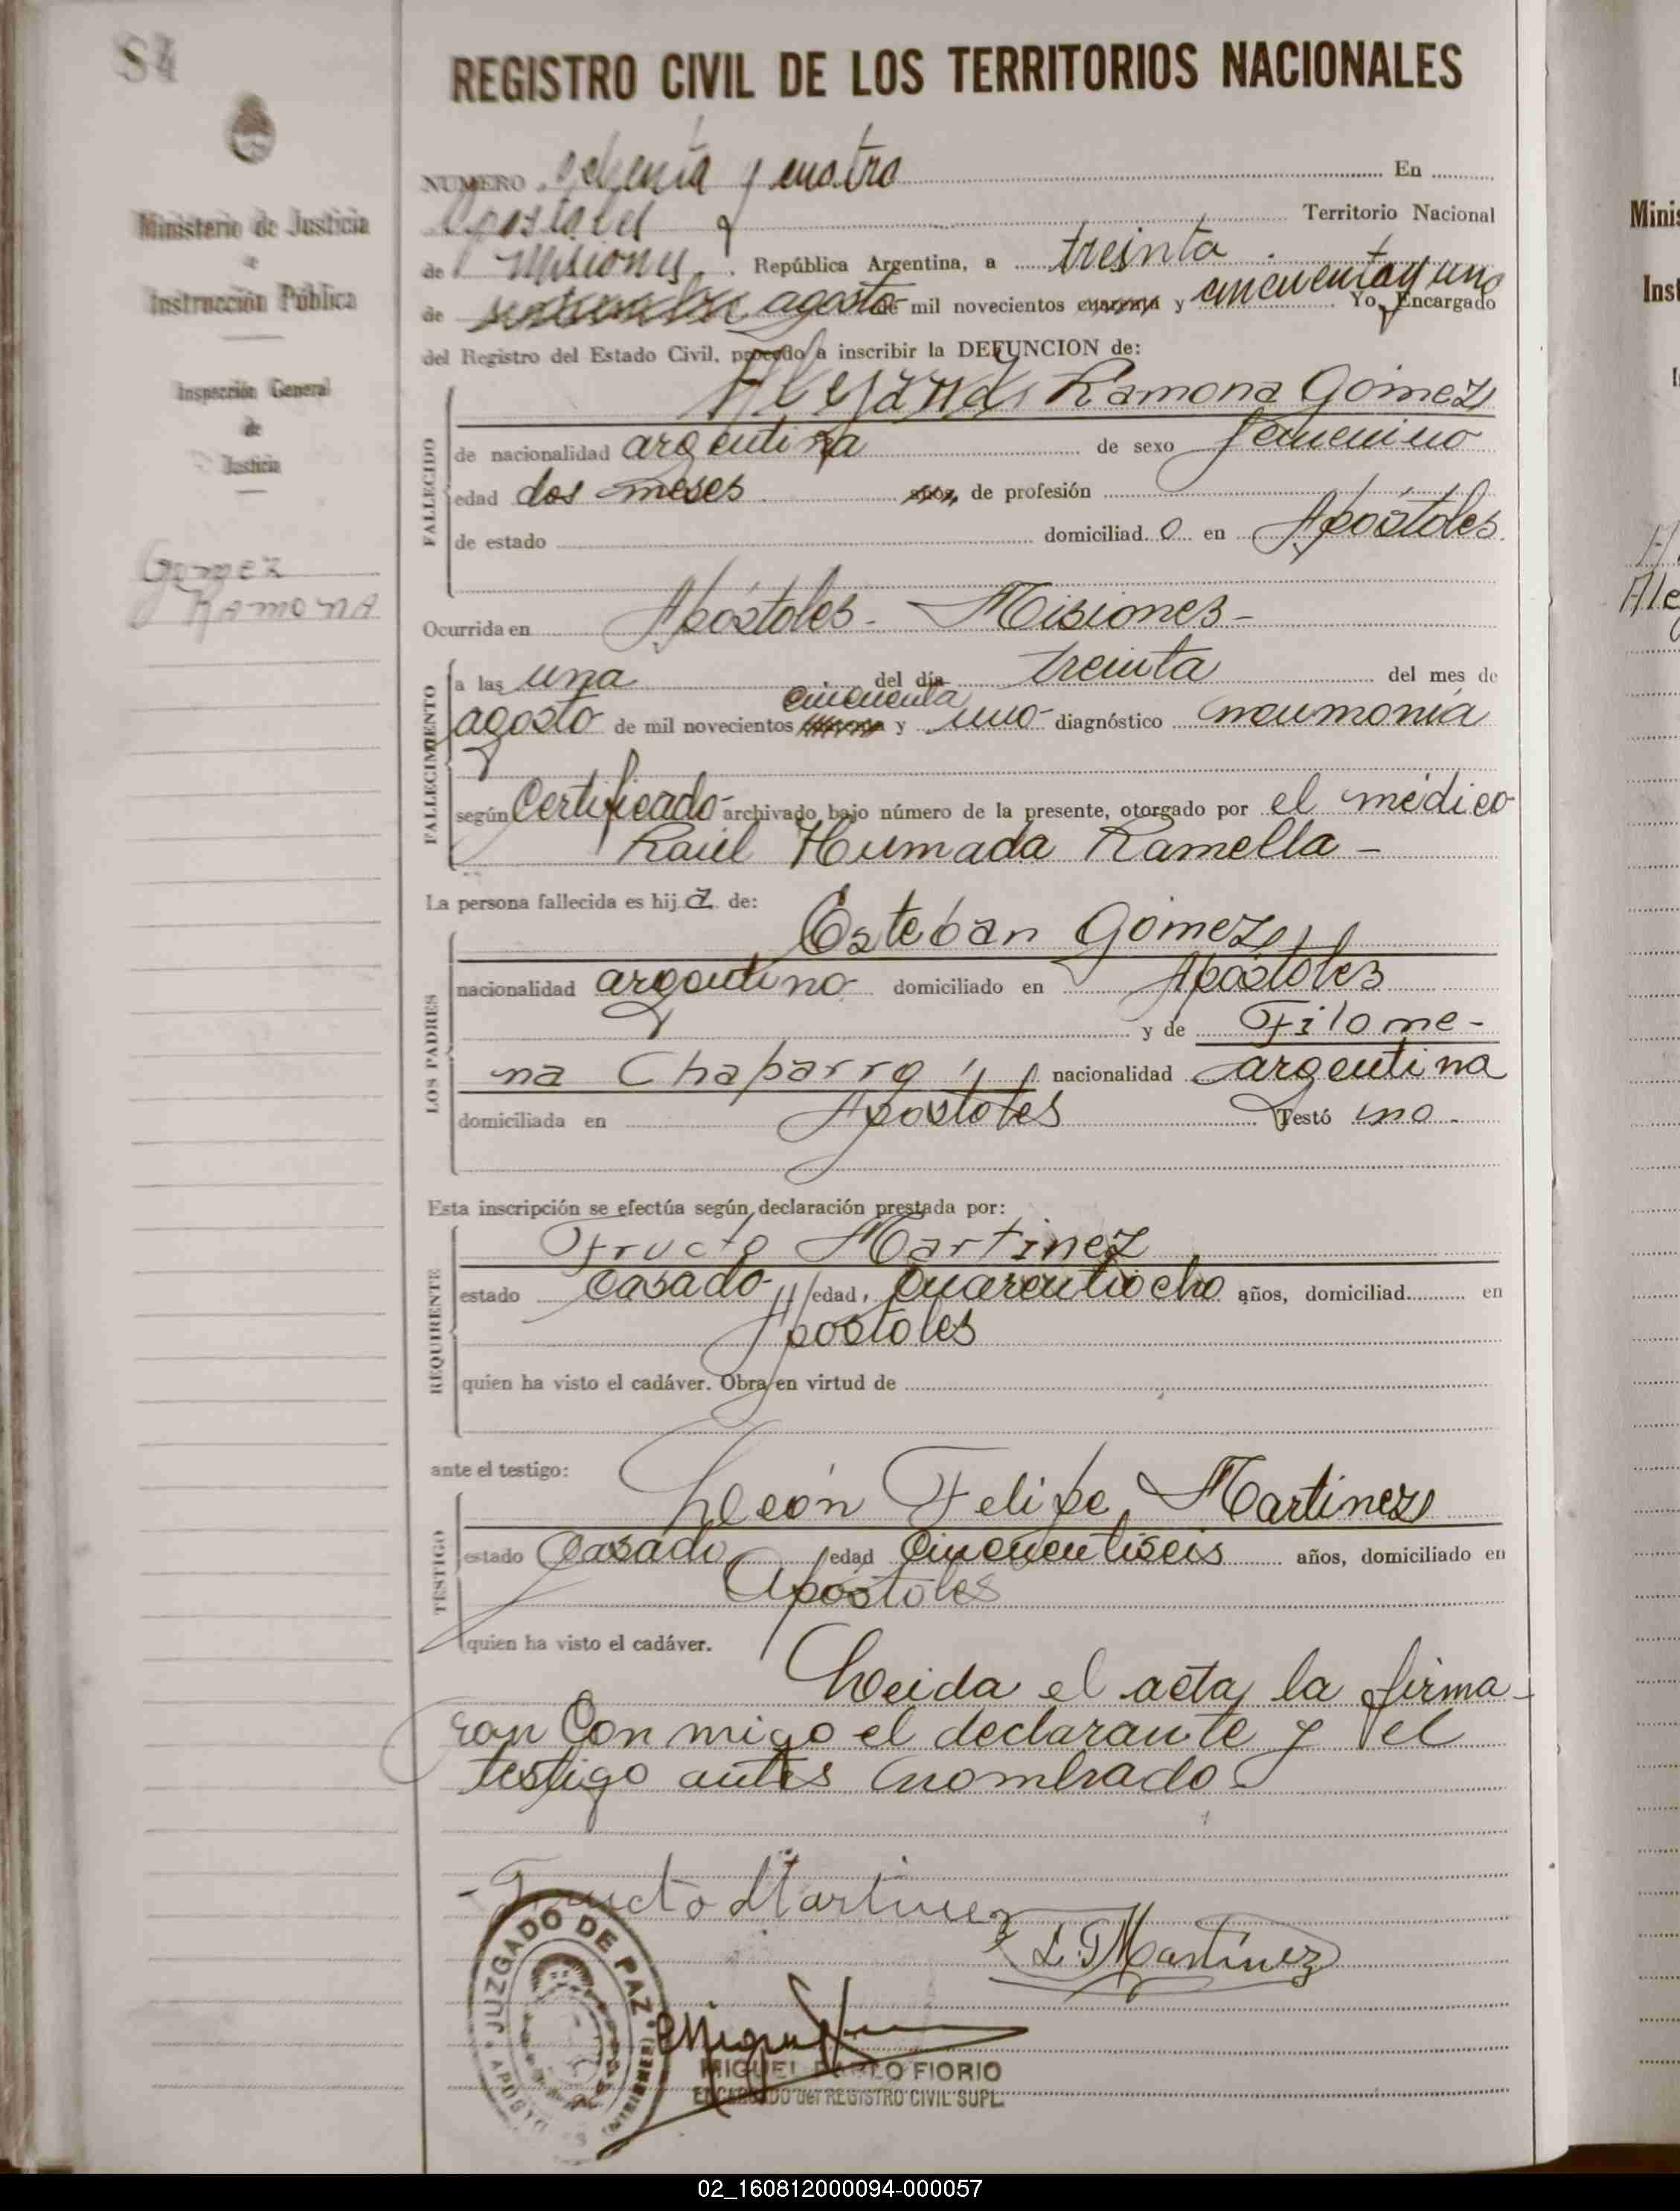 84
REGISTRO CIVIL DE LOS TERRITORIOS NACIONALES
Ministerio de Justicia
e
Instrucción Pública
Inspección General
de
Justicia
Gomez
Ramona
NUMERO ochenta y cuatro En
Apostoles Territorio Nacional
de Misiones, República Argentina, a treinta
de agosto de mil novecientos cuarenta y cincuenta y uno Yo, Encargado
del Registro del Estado Civil, procedo a inscribir la DEFUNCION de:
FALLECIDO
Alejandra Ramona Gómez
de nacionalidad argentina de sexo femenino
edad dos meses años, de profesión
de estado domiciliad o en Apóstoles
Ocurrida en Apóstoles - Misiones -
FALLECIMIENTO
a las una del día treinta del mes de
cincuenta
agosto de mil novecientos y uno - diagnóstico neumonía
según Certificado archivado bajo número de la presente, otorgado por el médico
Raúl Humada Ramella -
La persona fallecida es hij a de:
LOS PADRES
Esteban Gómez
nacionalidad argentino domiciliado en Apóstoles
y de Filome-
na Chaparro nacionalidad argentina
domiciliada en Apostoles Testó no -
Esta inscripción se efectúa según declaración prestada por:
REQUIRENTE
Fructo Martinez
estado casado edad, cuarentiocho años, domiciliad en
Apostoles
quien ha visto el cadáver. Obra en virtud de
ante el testigo:
TESTIGO
León Felipe Martinez
estado Casado edad cincuentiseis años, domiciliado en
Apóstoles
quien ha visto el cadáver.
Leida el acta, la firma-
ron con migo el declarante y el
testigo antes nombrado
Fructo Martinez
L F Martínez
JUZGADO DE PAZ
APOSTOLES (MISIONES)
MIGUEL PABLO FIORIO
ENCARGADO del REGISTRO CIVIL SUPL.
Minis
Inst
I
Ale
02_160812000094-000057